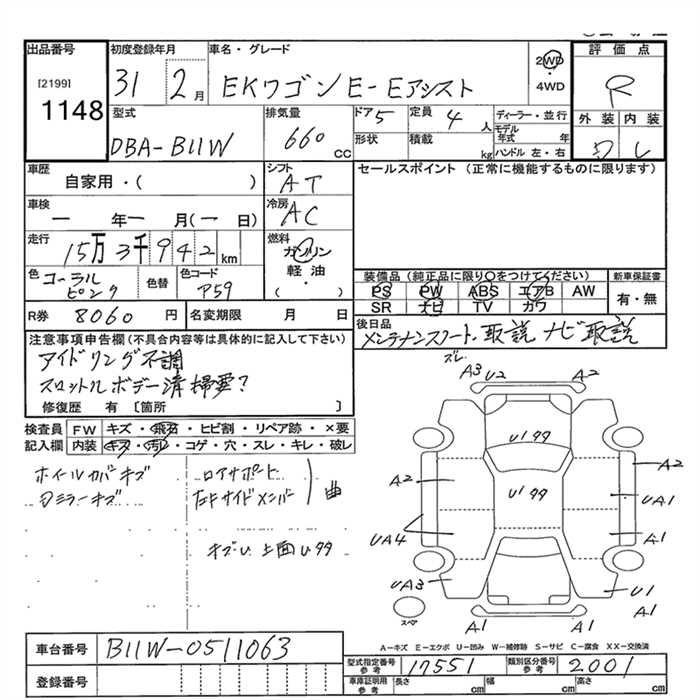 出品番号 初度登録年月 車名・グレード 評価点
[2199] 1148
31 2月 EKワゴン E-Eアシスト 2WD・4WD R
外装 内装
型式 排気量 ドア 5 定員 4人 ディーラー・並行
DBA-B11W 660 CC 形状 積載 kg モデル年式 年
ハンドル 左・右
車歴 シフト セールスポイント(正常に機能するものに限ります)
自家用・( ) AT
車検 冷房
一 年 一 月(一 日) AC
走行 燃料
15万3千942km ガソリン
軽油・
( )
色 色替 色コード 装備品(純正品に限り○をつけてください) 新車保証書
コーラルピンク P59 PS PW ABS エアB AW 有・無
SR ナビ TV カワ
R券 8060 円 名変期限 月 日 後日品
メンテナンスノート、取説 ナビ取説
注意事項申告欄(不具合内容等は具体的に記入して下さい)
アイドリング不調
スロットルボデー清掃要?
修復歴 有 〔箇所 〕
検査員 FW キズ・飛石・ヒビ割・リペア跡・×要
記入欄 内装 キズ・汚レ・コゲ・穴・スレ・キレ・破レ
ホイールカバキズ ロアサポート
左右サイドメンバー 曲
ズレ
A3 U2 A2
U199
A2 U199 A2
UA1
UA4 A1
UA3 U1
A1 A1
スペア
A-キズ E-エクボ U-凹み W-補修跡 S-サビ C-腐食 XX-交換済
車台番号 B11W-0511063
登録番号
型式指定番号 参考 17551 類別区分番号 参考 2001
車庫証明用 参考 長さ cm 幅 cm 高さ cm